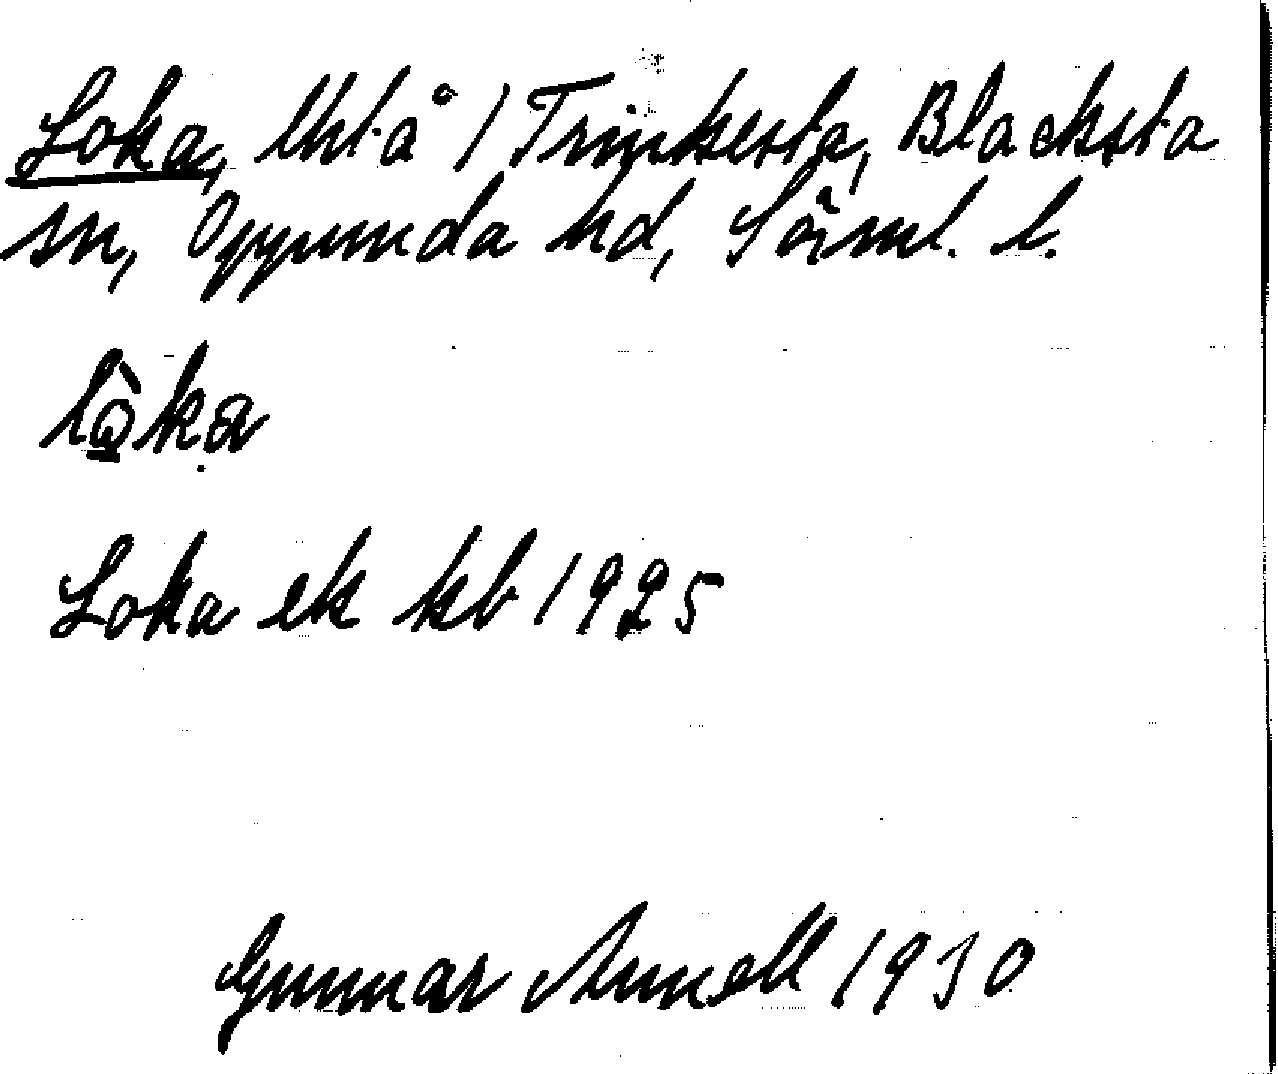 Loka, lht å / Trinkesta, Blacksta
sn, Oppunda hd, Sörml. l.
lò̱kạ
Loka ek kb 1925
Gunnar Arnell 1930